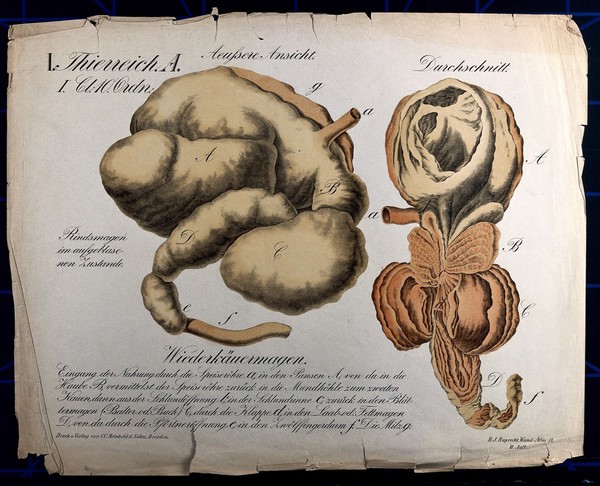 I. Thierreich. A.
I. Cl. 10. Ordn.
Aeußere Ansicht.
Durchschnitt.
g
a
A
B
D
C
e
f
Rindsmagen
im aufgeblase-
nen Zustande.
a
A
B
C
D
f
Wiederkäuermagen.
Eingang der Nahrung durch die Speiseröhre, a, in den Pansen A, von da in die
Haube B, vermittelst der Speiseröhre zurück in die Mundhöhle zum zweiten
Kauen, dann aus der Schlundöffnung b, in der Schlundrinne c, zurück in den Blät-
termagen (Psalter od. Buch) C, durch die Klappe d, in den Laab-od. Fettmagen
D, von da durch die Pförtneröffnung e, in den Zwölffingerdarm f. Die Milz g.
Druck u Verlag von C.C. Meinhold & Söhne, Dresden.
H. J. Ruprecht, Wand-Atlas